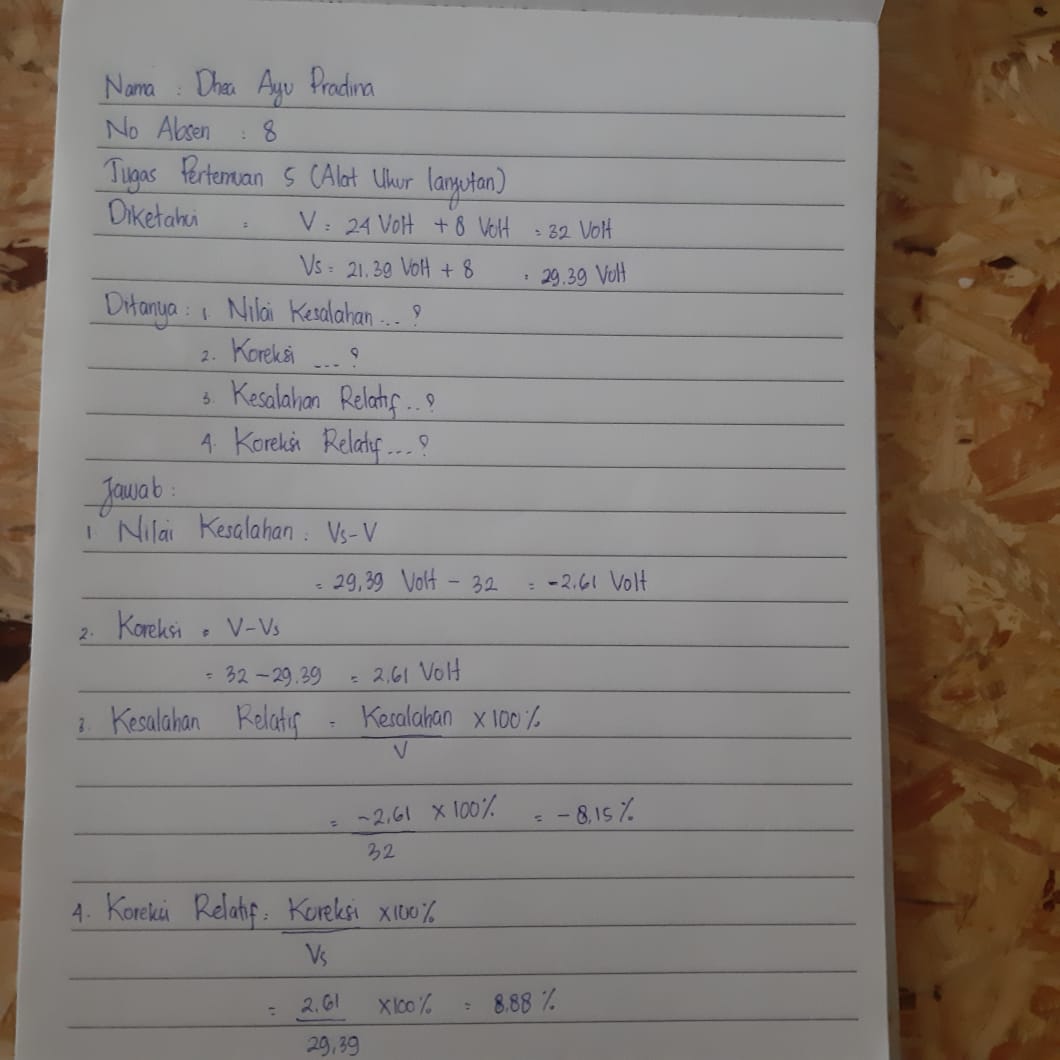 Nama : Dhea Ayu Pradina
No Absen : 8
Tugas Pertemuan 5 (Alat Ukur lanjutan)
Diketahui : V = 24 Volt + 8 Volt = 32 Volt
Vs = 21.39 Volt + 8 = 29.39 Volt
Ditanya : 1. Nilai Kesalahan ... ?
2. Koreksi ... ?
3. Kesalahan Relatif .. ?
4. Koreksi Relatif ... ?
Jawab :
1 Nilai Kesalahan : Vs - V
= 29,39 Volt - 32 = -2.61 Volt
2. Koreksi = V - Vs
= 32 - 29.39 = 2.61 Volt
3. Kesalahan Relatif = Kesalahan x 100%
V
= -2,61 x 100% = - 8,15 %
32
4. Koreksi Relatif = Koreksi x100%
Vs
= 2.61 x100% = 8.88 %
29,39